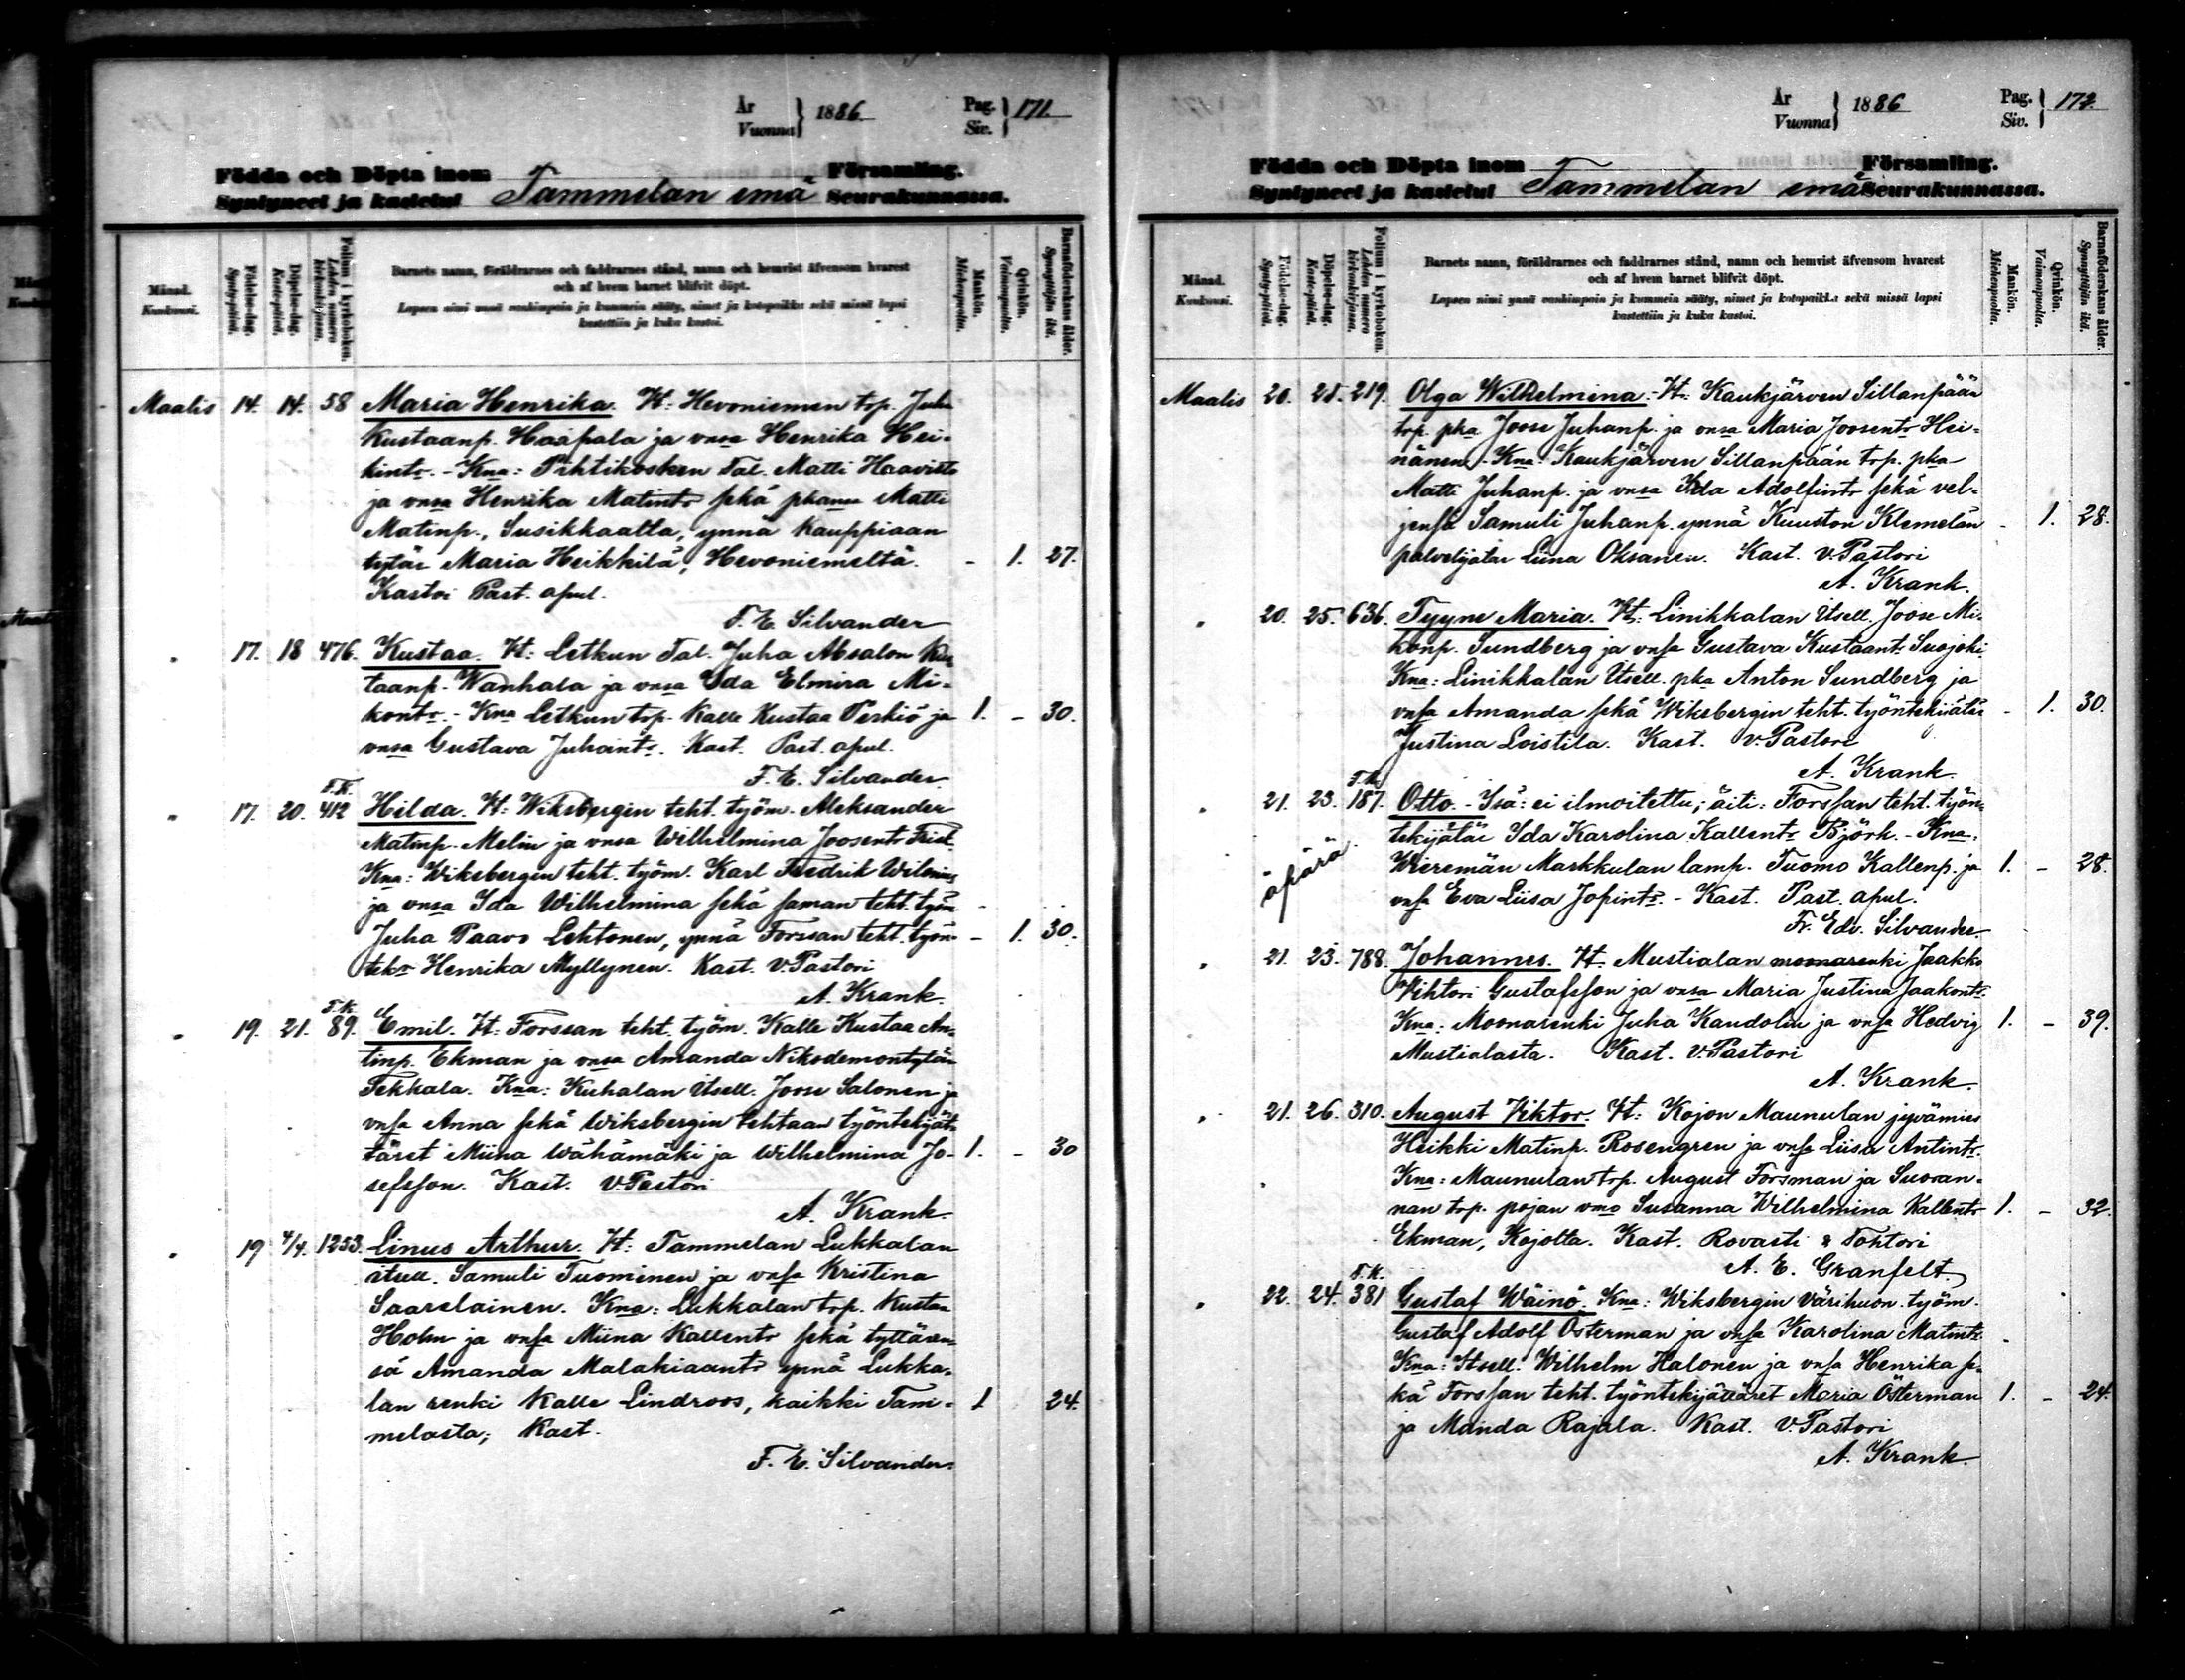 År
Vuonna } 1886. Pag.
Siv. } 171.
Födda och Döpta inom Församling.
Syntyneet ja kastetut Tammelan emä Seurakunnassa.
Månad.
Kuukausi.
Födelse-dag.
Synty-päivä.
Döpelse-dag.
Kaste-päivä.
Folium i kyrkoboken.
Lehden numero
kirkonkirjassa.
Barnets namn, föräldrarnes och faddrarnes stånd, namn och hemvist äfvensom hvarest
och af hvem barnet blifvit döpt.
Lapsen nimi ynnä vanhimpain ja kummein sääty, nimet ja kotopaikka sekä missä lapsi
kastettiin ja kuka kastoi.
Mankön.
Miehenpuolta.
Qvinkön.
Vaimonpuolta.
Barnföderskans ålder.
Synnyttäjän ikä.
Maalis 14. 14. 58 Maria Henrika. Vt: Hevoniemen trp. Juha
Kustaanp. Haapala ja vnsa Henrika Hei-
kintr. - Kna: Pihtikosken Tal. Matti Haavisto
ja vnsa Henrika Matintr sekä pkansa Matti
Matinp., Susikkaalta, ynnä Kauppiaan
tytär Maria Heikkilä, Hevoniemeltä. - 1. 27.
Kastoi Past. apul.
F. E. Silvander
" 17. 18 476. Kustaa. Vt: Letkun Tal. Juha Absalon Kus-
taanp. Wanhala ja vnsa Ida Elmira Mi-
kontr. - Kna Letkun trp. Kalle Kustaa Perkiö ja 1. - 30.
vnsa Gustava Juhantr. Kast. Past. apul.
F. E. Silvander
" 17. 20. F.K. 412 Hilda. Vt: Wiksbergin teht. työm. Aleksander
Matinp. Melin ja vnsa Wilhelmina Joosentr
Kna: Wiksbergin teht. työm. Karl Fredrik Wilenius
ja vnsa Ida Wilhelmina sekä saman teht. työm.
Juha Paavo Lehtonen, ynnä Forssan teht. työn- - 1. 30.
tekr Henrika Myllynen. Kast. v. Pastori
A. Krank.
" 19. 21. F.K. 89. Emil. Vt: Forssan teht. työm. Kalle Kustaa An-
tinp. Ekman ja vnsa Amanda Nikodemontytär
Tekkala. Kna: Kuhalan Itsell. Joose Salonen ja
vnsa Anna sekä Wiksbergin tehtaan työntekijät-
täret Miina Wähämäki ja Wilhelmina Jo- 1. - 30
sefsson. Kast. v. Pastori
A. Krank.
" 19 4/4. 1253. Linus Arthur. Vt: Tammelan Lukkalan
itsell. Samuli Tuominen ja vnsa Kristina
Saarelainen. Kna: Lukkalan trp. Kustaa
Holm ja vnsa Miina Kallentr sekä tyttären-
sä Amanda Malakiaantr ynnä Lukka-
lan renki Kalle Lindroos, kaikki Tam- 1 24.
melasta; Kast.
F. E. Silvander.
År
Vuonna } 1886 Pag.
Siv. } 172.
Födda och Döpta inom Församling.
Syntyneet ja kastetut Tammelan emä Seurakunnassa.
Månad.
Kuukausi.
Födelse-dag.
Synty-päivä.
Döpelse-dag.
Kaste-päivä.
Folium i kyrkoboken.
Lehden numero
kirkonkirjassa.
Barnets namn, föräldrarnes och faddrarnes stånd, namn och hemvist äfvensom hvarest
och af hvem barnet blifvit döpt.
Lapsen nimi ynnä vanhimpain ja kummein sääty, nimet ja kotopaikka sekä missä lapsi
kastettiin ja kuka kastoi.
Mankön.
Miehenpuolta.
Qvinkön.
Vaimonpuolta.
Barnföderskans ålder.
Synnyttäjän ikä.
Maalis 20. 28. 219. Olga Wilhelmina. - Vt: Kaukjärven Sillanpään
trp. pka Joose Juhanp. ja vnsa Maria Joosentr Hei-
nänen. - Kna: Kaukjärven Sillanpään trp. pka
Matti Juhanp. ja vnsa Ida Adolfintr sekä vel-
jensä Samuli Juhanp. ynnä Kuuston Klemelän - 1. 28.
palvelijatar Liina Oksanen. Kast. v. Pastori
A. Krank.
" 20. 25. 636. Tyyne Maria. Vt: Linikkalan Itsell. Joose Mi-
konp. Sundberg ja vnsa Gustava Kustaantr Suojoki
Kna: Linikkalan Itsell. pka Anton Sundberg ja
vnsa Amanda sekä Wiksbergin teht. työntekijätär - 1. 30.
Justina Loistila. Kast. v. Pastori
A. Krank.
" 21. 23. F.K. 187. Otto. - Isä: ei ilmoitettu; äiti: Forssan teht. työn-
tekijätär Ida Karolina Kallentr Björk. - Kna:
äpärä Wieremän Markkulan lamp. Tuomo Kallenp. ja 1. - 28.
vnsa Eva Liisa Josintr. - Kast. Past. apul.
Fr. Edv. Silvander.
" 21. 23. 788. Johannes. Vt. Mustialan moonarenki Jaakko
Vihtori Gustafsson ja vnsa Maria Justina Jaakontr.
Kna: Moonarenki Juha Kandolin ja vnsa Hedvig 1. - 39.
Mustialasta. Kast. v. Pastori
A. Krank.
" 21. 26. 310. August Viktor. Vt: Kojon Maunulan jyvämies
Heikki Matinp. Rosengren ja vnsa Liisa Antintr.
Kna: Maunulan trp. August Forsman ja Suoran-
nan trp. pojan vmo Susanna Wilhelmina Kallentr 1. - 32.
Ekman, Kojolta. Kast. Rovasti & Tohtori
A. E. Granfelt.
" 22. 24. F.K. 381 Gustaf Wäinö. Kna: Wiksbergin Värihuon. työm.
Gustaf Adolf Österman ja vnsa Karolina Matintr.
Kna: Itsell. Wilhelm Halonen ja vnsa Henrika se-
kä Forssan teht. työntekijättäret Maria Österman 1. - 24.
ja Manda Rajala. Kast. v. Pastori
A. Krank.